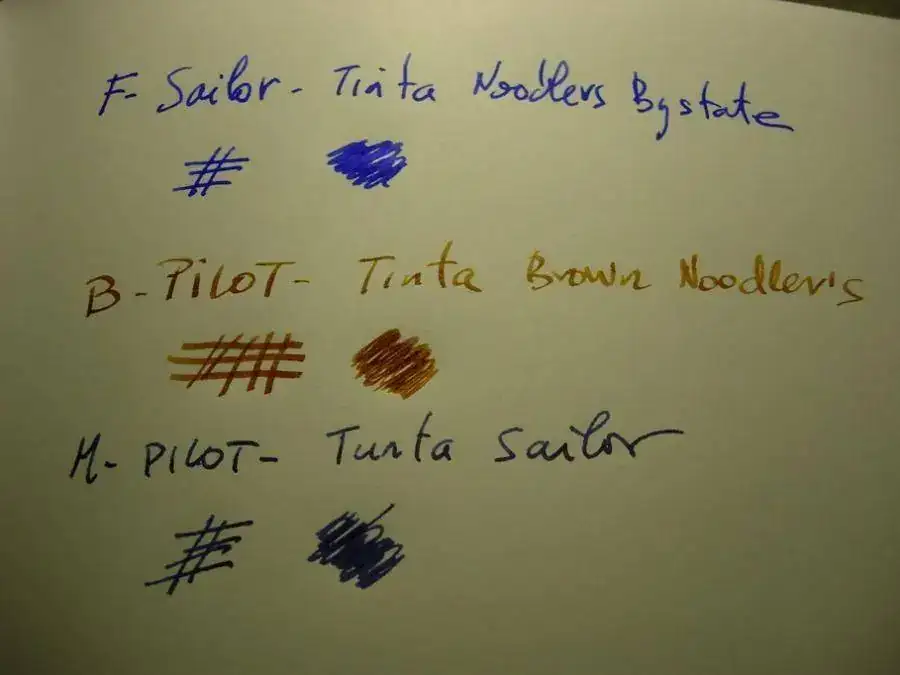 F- Sailor - Tinta Noodlers Bystate
B - PiLOT - Tinta Brown Noodler's
M - PILOT - Tinta Sailor